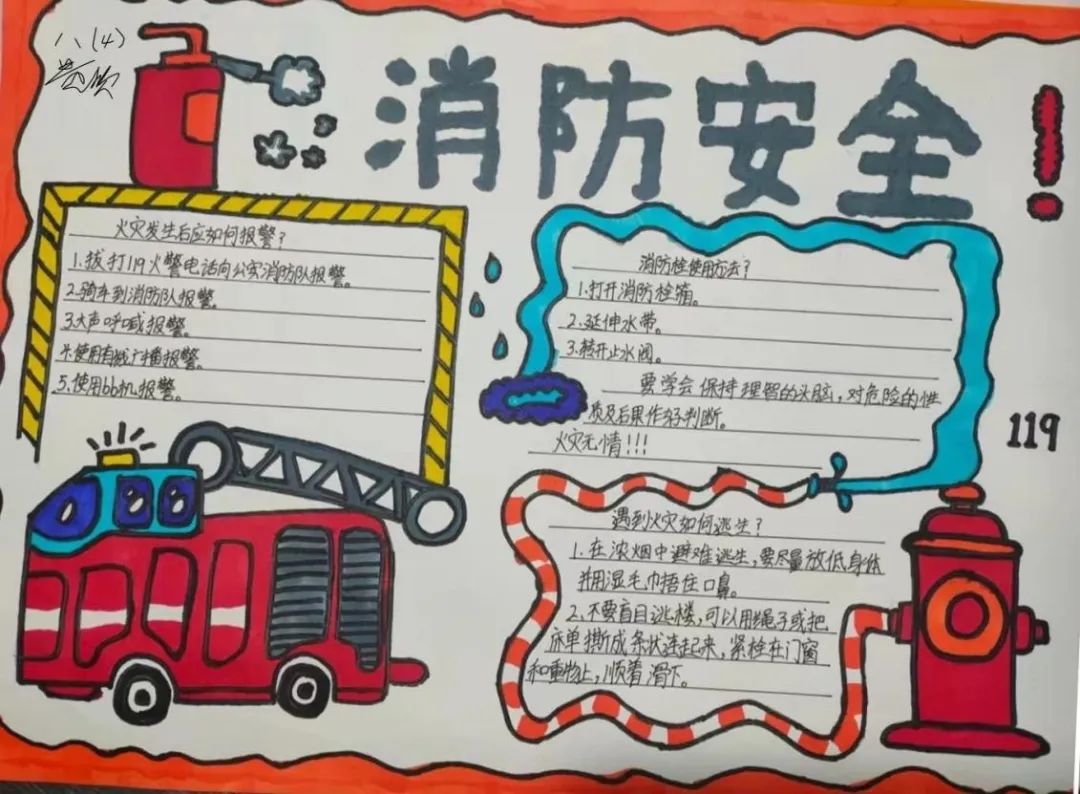 八(4)
消防安全!
火灾发生后应如何报警?
1.拔打119火警电话向公安消防队报警。
2.骑车到消防队报警。
3.大声呼喊报警。
4.使用有线广播报警。
5.使用bb机报警。
消防栓使用方法?
1.打开消防栓箱。
2.延伸水带。
3.转开止水阀。
要学会保持理智的头脑,对危险的性
质及后果作好判断。
火灾无情!!!
119
遇到火灾如何逃生?
1.在浓烟中避难逃生,要尽量放低身体
并用湿毛巾捂住口鼻。
2.不要盲目跳楼,可以用绳子或把
床单撕成条状连起来,紧栓在门窗
和重物上,顺着滑下。